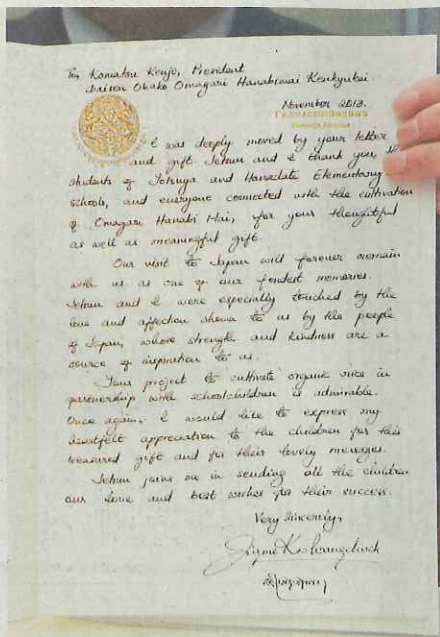 To, Komatsu Kenjo, President
Obako Omagari Hanabimai Kenkyukai.
November 2013.
I was deeply moved by your letter
and gift. Jetsun and I thank you, the
students of and Hanadate Elementary
schools, and everyone connected with the cultivation
of Omagari Hanabi Mai, for your thoughtful
as well as meaningful gift.
Our visit to Japan will forever remain
with us as one of our fondest memories.
Jetsun and I were especially touched by the
love and affection shown to us by the people
of Japan, whose strength and kindness are a
source of inspiration to us.
Your project to cultivate organic rice in
partnership with schoolchildren is admirable.
Once again, I would like to express my
heartfelt appreciation to the children for their
treasured gift and for their lovely messages.
Jetsun joins me in sending all the children
our love and best wishes for their success.
Very Sincerely,